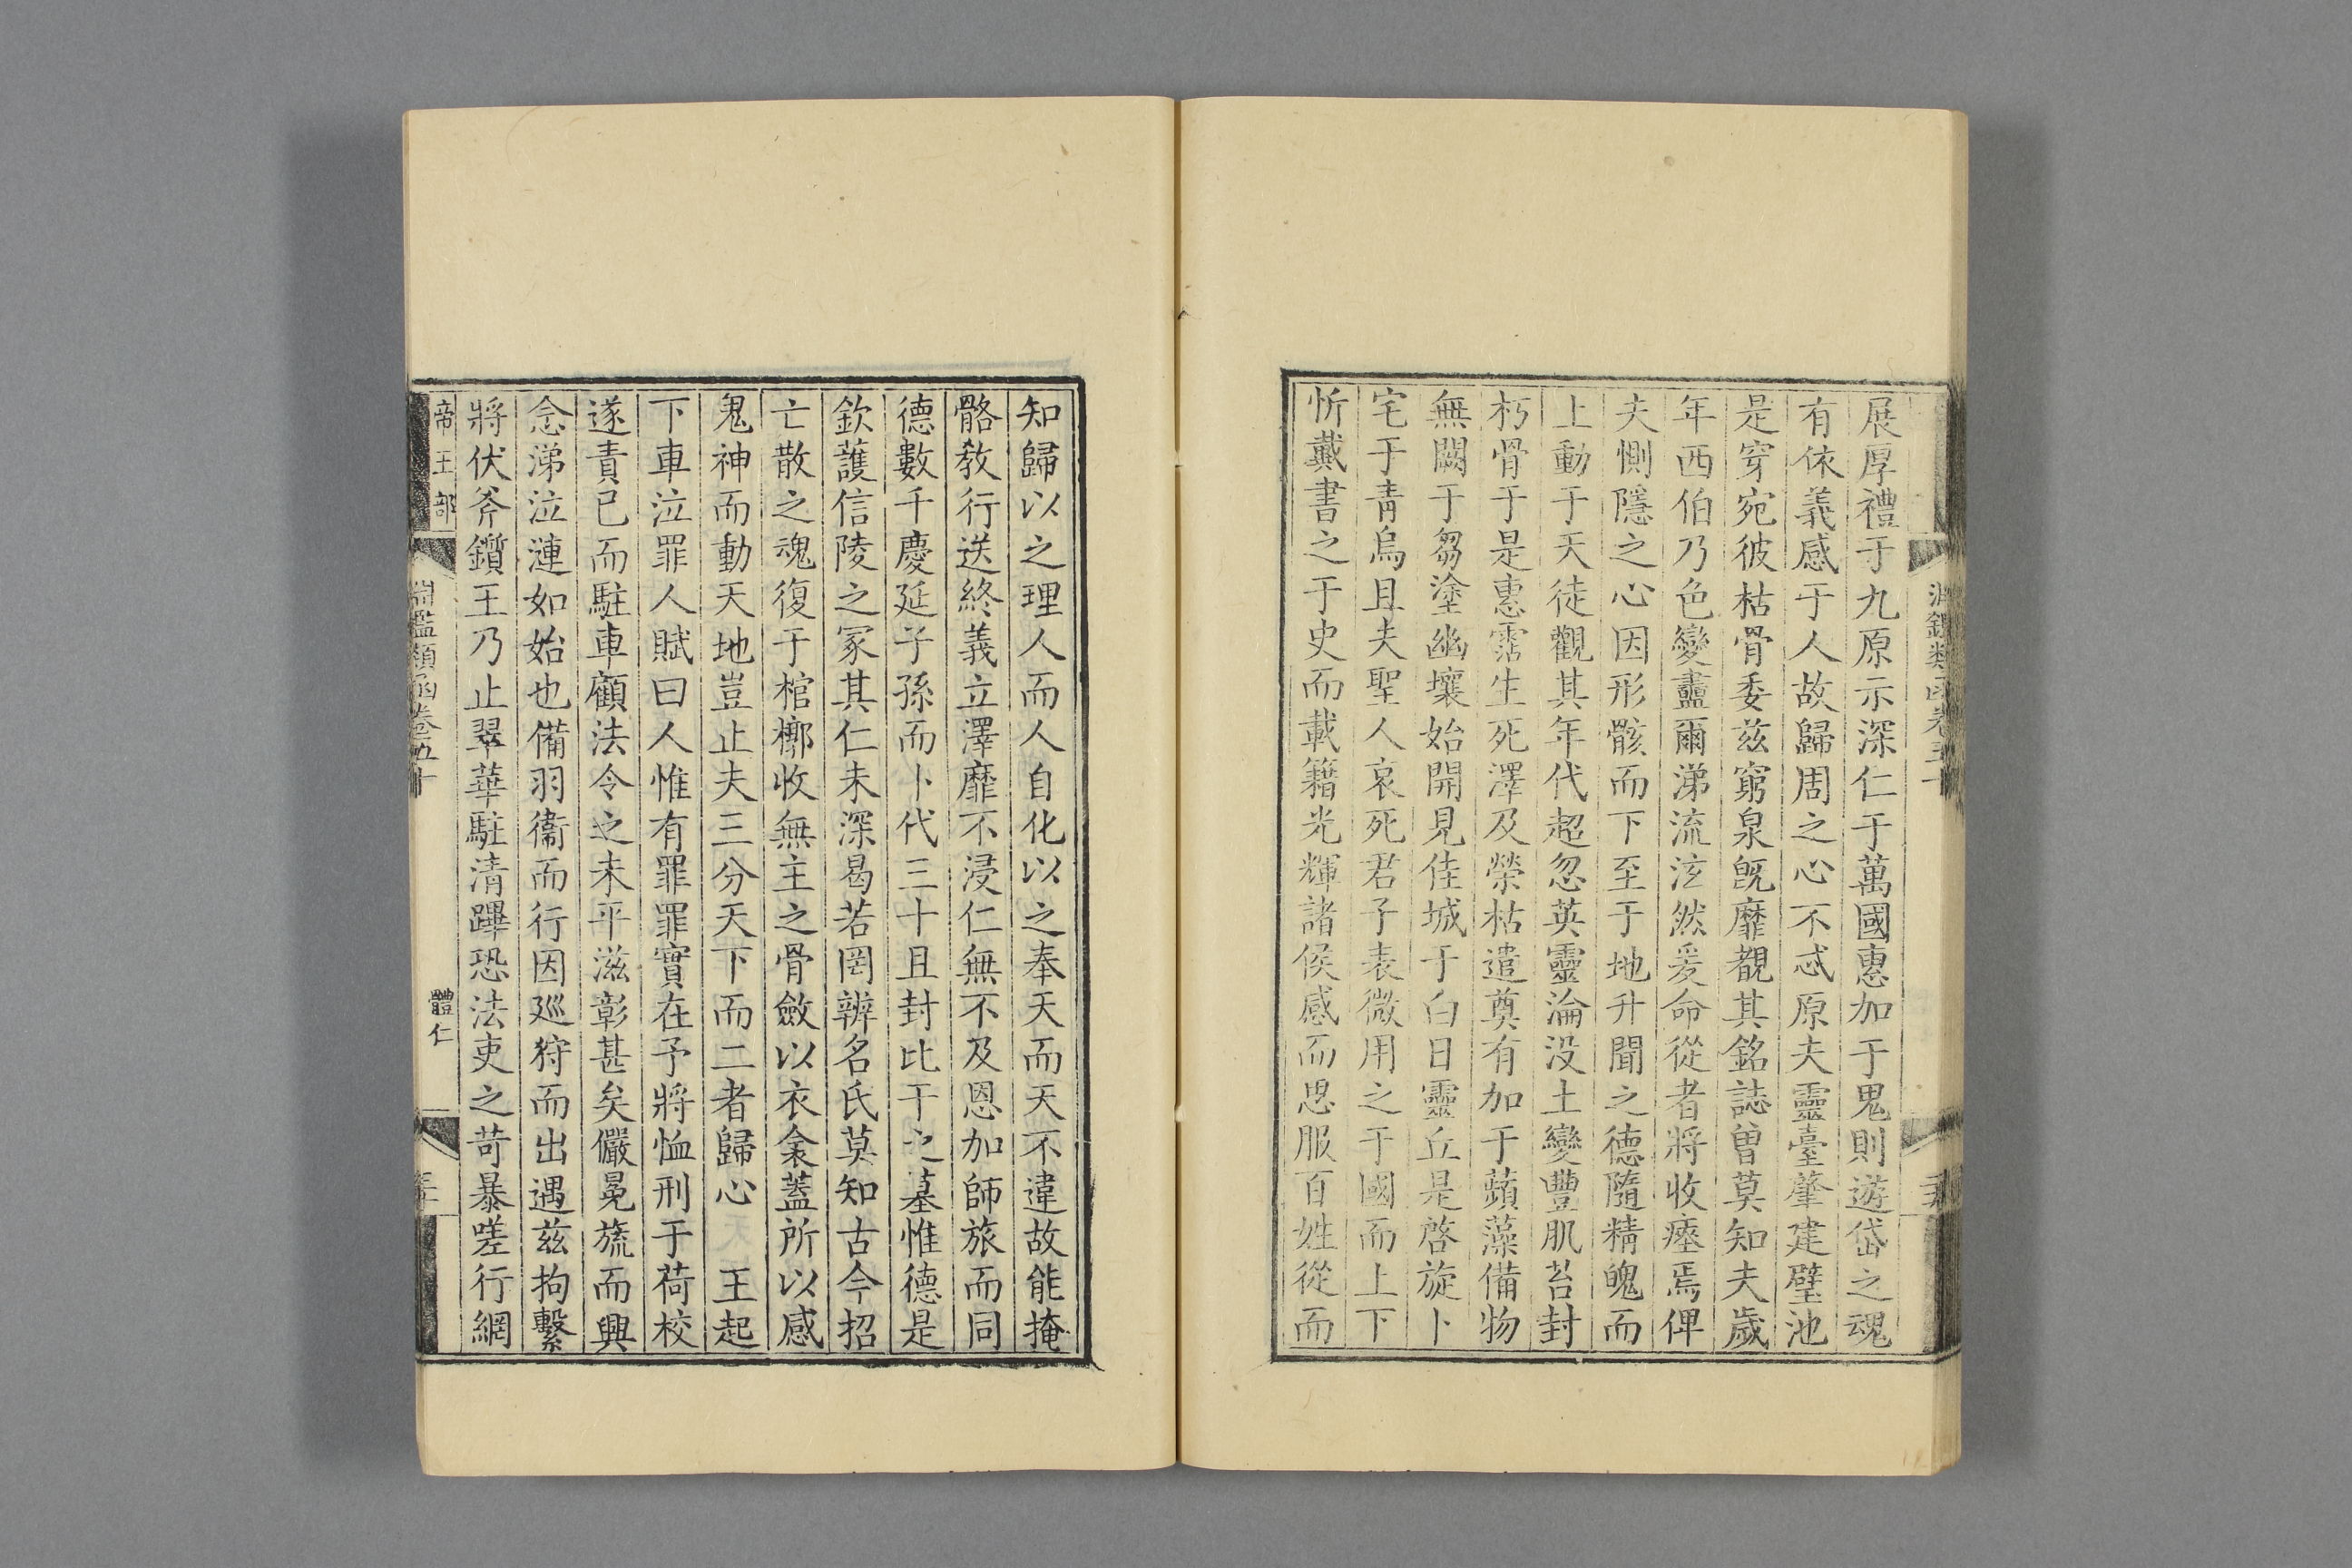 展厚禮于九原示深仁于萬國惠加于鬼則遊岱之魂
有依義感于人故歸周之心不忒原夫靈臺肇建璧池
是穿宛彼枯骨委兹窮泉旣靡覩其銘誌曾莫知夫歲
年西伯乃色變衋爾涕流泫然爰命從者將收瘞焉俾
夫惻隱之心因形骸而下至于地升聞之德隨精魄而
上動于天徒觀其年代超忽英靈淪没土變豐肌苔封
朽骨于是惠霑生死澤及榮枯遣奠有加于蘋藻備物
無闕于芻塗幽壤始開見佳城于白日靈丘是啓旋卜
宅于青烏且夫聖人哀死君子表微用之于國而上下
忻戴書之于史而載籍光輝諸侯感而思服百姓從而
知歸以之理人而人自化以之奉天而天不違故能掩
骼敎行送終義立澤靡不浸仁無不及恩加師旅而同
德數千慶延子孫而卜代三十且封比干之墓惟德是
欽護信陵之冢其仁未深曷若罔辨名氏莫知古今招
亡散之魂復于棺槨收無主之骨斂以衣衾蓋所以感
鬼神而動天地豈止夫三分天下而二者歸心 王起
下車泣罪人賦曰人惟有罪罪實在予將恤刑于荷校
遂責已而駐車顧法令之未平滋彰甚矣儼冕旒而興
念涕泣漣如始也備羽衞而行因廵狩而出遇兹拘繫
將伏斧鑕王乃止翠華駐清蹕恐法吏之苛暴嗟行網
帝王部 淵鑑類函卷五十 體仁